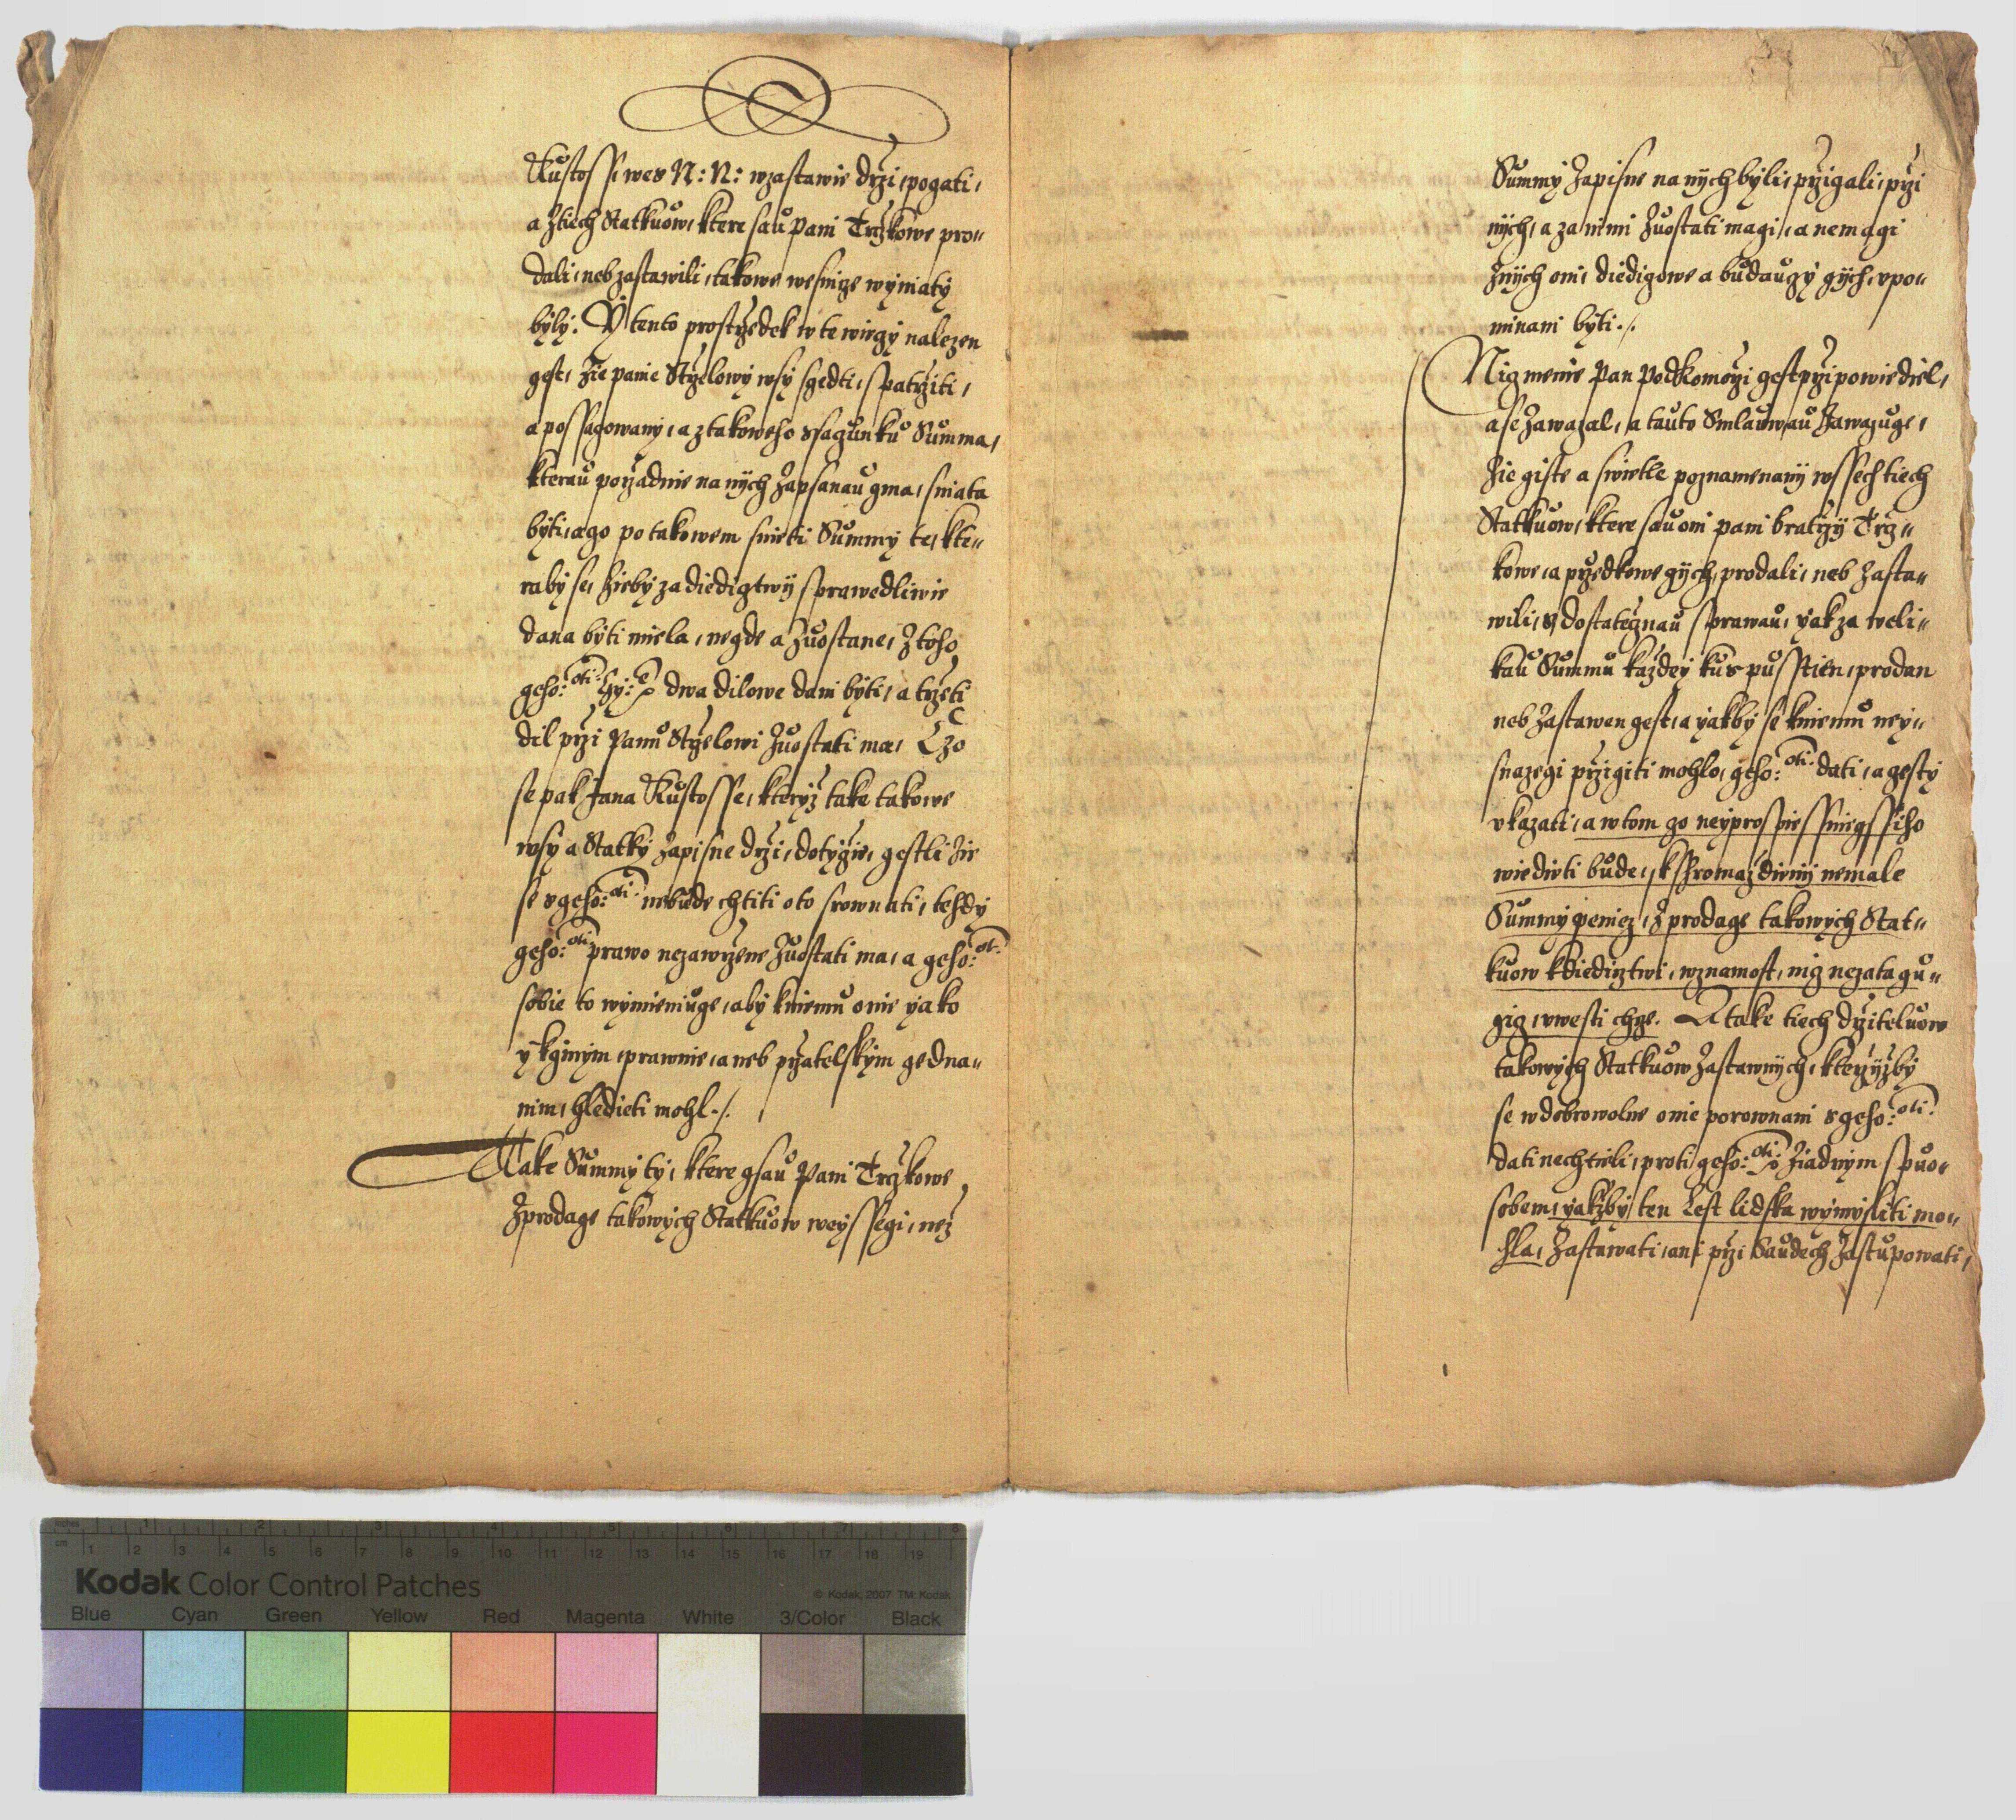 Kustoss, wes N: N: wzastawie drži, pogati,
a Ztiech Statkuow, ktere sau Pani Trczkowe pro„
dali, neb zastawili, takowe wesnicze wyniaty
byly. Y tento prostrzedek w te wieczy nalezen
gest, Zie panie Strzelowy wsy sgedti, spatrziti,
a possaczowany, a z takoweho ssaczunku Summa,
kterau porzadnie na nych Zapsanau gma, sniata
byti, a czo po takowem snieti Summy te, kte„
raby se, Zieby za diedicztwij sprawedliwie
dana byti miela, negde a Zuostane, Z toho
geho: oti: Czy: dwa dilowe dani byti, a trzeti
dil przi Panu Strzelowi Zuostati ma, Czo
se pak Jana Kustosse, kteryž take takowe
wsy a Statky Zapisne drži, dotycze, gestli Zie
se s geho: oti: nebude chtiti oto srownati, tehdy
geho: oti: prawo nezawrzene Zuostati ma, a geho: ot:
sobie to wymieniuge, aby kniemu o nie yako
y k ginym, prawnie, a neb przatelskym gedna„
nim, hledieti mohl ./.
Take Summy ty, ktere gsau Pani Trczkowe
Z prodage takowych Statkuow weyssegi, než
Summy Zapisne na nych byli, przigali, przi
nych, a za nimi Zuostati magi, a nemagi
Znych oni, diediczowe a budauczy gych, vpo„
minani byti ./.
Nicz menie Pan Podkomorzi gest przipowiediel,
a se Zawazal, a tauto Smlauwau Zawazuge,
Zie giste a swietle poznamenany wssech tiech
Statkuow, ktere sau oni pani bratrzy Trcz„
kowe, a przedkowe gych, prodali, neb Zasta„
wili, s dostatecznau sprawau, yak za weli„
kau Summu každey kus pusstien, prodan
neb Zastawen gest, a yakby se kniemu ney„
snazegi przigiti mohlo, geho: oti: dati, a gesty
vkazati, a w tom czo neyprospiessniegssiho
wiedieti bude, k shromaždieny nemale
Summy peniez, z prodage takowych Stat„
kuow kdiedicztwi, wznamost, nicz nezatagu„
gicz, vwesti chcze. A take tiech držiteluow
takowych Statkuow Zastawnych, kterzyžby
se w dobrowolne o nie porownani s geho: oti:
dati nechtieli, proti geho: oti: Ziadnym spuo„
sobem, yakžby ten Lest lidska wymysliti mo„
hla, Zastawati, ani przi Saudech Zastupowati,
Kodak Color Control Patches
© Kodak, 2007 TM: Kodak
inches 1 2 3 4 5 6 7 8
cm 1 2 3 4 5 6 7 8 9 10 11 12 13 14 15 16 17 18 19
Blue Cyan Green Yellow Red Magenta White 3/Color Black